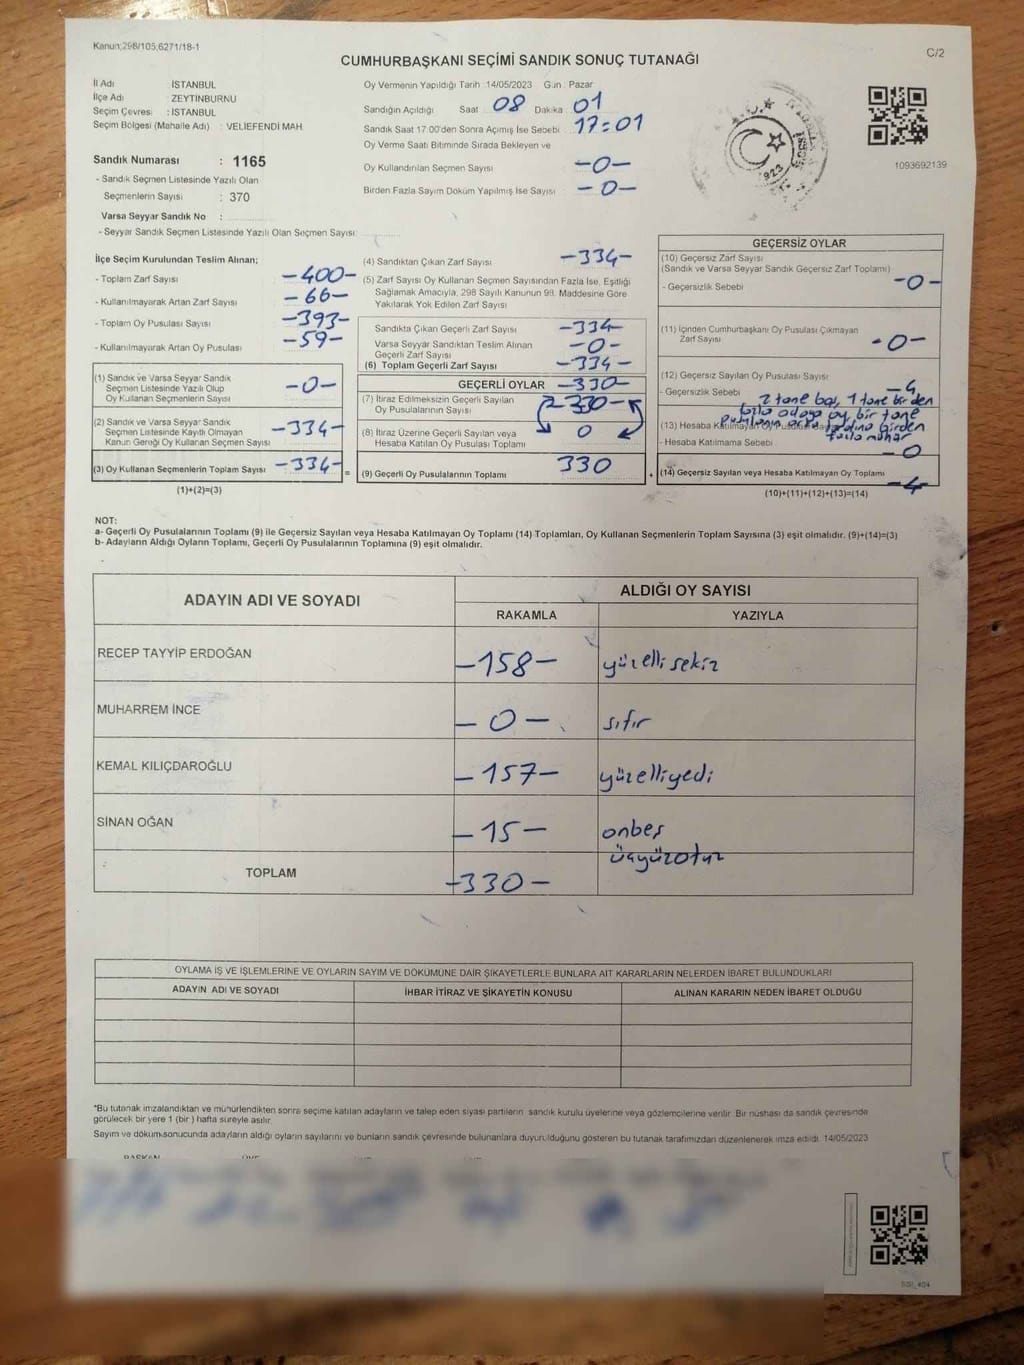 Kanun;298/105;6271/18-1
C/2
CUMHURBAŞKANI SEÇİMİ SANDIK SONUÇ TUTANAĞI
İl Adı : İSTANBUL
İlçe Adı : ZEYTİNBURNU
Seçim Çevresi : İSTANBUL
Seçim Bölgesi (Mahalle Adı) : VELİEFENDİ MAH
Sandık Numarası : 1165
- Sandık Seçmen Listesinde Yazılı Olan
Seçmenlerin Sayısı : 370
Varsa Seyyar Sandık No :
- Seyyar Sandık Seçmen Listesinde Yazılı Olan Seçmen Sayısı:
Oy Vermenin Yapıldığı Tarih :14/05/2023 Gün : Pazar
Sandığın Açıldığı Saat 08 Dakika 01
Sandık Saat 17:00'den Sonra Açımış İse Sebebi 17:01
Oy Verme Saati Bitiminde Sırada Bekleyen ve
Oy Kullandırılan Seçmen Sayısı -0-
Birden Fazla Sayım Döküm Yapılmış İse Sayısı -0-
1923
1093692139
İlçe Seçim Kurulundan Teslim Alınan;
- Toplam Zarf Sayısı -400-
- Kullanılmayarak Artan Zarf Sayısı -66-
- Toplam Oy Pusulası Sayısı -393-
- Kullanılmayarak Artan Oy Pusulası -59-
(1) Sandık ve Varsa Seyyar Sandık
Seçmen Listesinde Yazılı Olup
Oy Kullanan Seçmenlerin Sayısı -0-
(2) Sandık ve Varsa Seyyar Sandık
Seçmen Listesinde Kayıtlı Olmayan
Kanun Gereği Oy Kullanan Seçmen Sayısı -334-
(3) Oy Kullanan Seçmenlerin Toplam Sayısı -334- =
(1)+(2)=(3)
(4) Sandıktan Çıkan Zarf Sayısı -334-
(5) Zarf Sayısı Oy Kullanan Seçmen Sayısından Fazla İse, Eşitliği
Sağlamak Amacıyla, 298 Sayılı Kanunun 98. Maddesine Göre
Yakılarak Yok Edilen Zarf Sayısı
Sandıkta Çıkan Geçerli Zarf Sayısı -334-
Varsa Seyyar Sandıktan Teslim Alınan
Geçerli Zarf Sayısı -0-
(6) Toplam Geçerli Zarf Sayısı -334-
GEÇERLİ OYLAR -330-
(7) İtiraz Edilmeksizin Geçerli Sayılan
Oy Pusulalarının Sayısı 330
(8) İtiraz Üzerine Geçerli Sayılan veya
Hesaba Katılan Oy Pusulası Toplamı 0
(9) Geçerli Oy Pusulalarının Toplamı 330 +
GEÇERSİZ OYLAR
(10) Geçersiz Zarf Sayısı
(Sandık ve Varsa Seyyar Sandık Geçersiz Zarf Toplamı)
- Geçersizlik Sebebi -0-
(11) İçinden Cumhurbaşkanı Oy Pusulası Çıkmayan
Zarf Sayısı -0-
(12) Geçersiz Sayılan Oy Pusulası Sayısı -4
- Geçersizlik Sebebi 2 tane boş, 1 tane birden
fazla adaya oy, bir tane
pusulanın arka birden
fazla mühür
- Hesaba Katılmama Sebebi -0
(14) Geçersiz Sayılan veya Hesaba Katılmayan Oy Toplamı -4
(10)+(11)+(12)+(13)=(14)
NOT:
a- Geçerli Oy Pusulalarının Toplamı (9) ile Geçersiz Sayılan veya Hesaba Katılmayan Oy Toplamı (14) Toplamları, Oy Kullanan Seçmenlerin Toplam Sayısına (3) eşit olmalıdır. (9)+(14)=(3)
b- Adayların Aldığı Oyların Toplamı, Geçerli Oy Pusulalarının Toplamına (9) eşit olmalıdır.
ADAYIN ADI VE SOYADI
ALDIĞI OY SAYISI
RAKAMLA YAZIYLA
RECEP TAYYİP ERDOĞAN -158- yüzelli sekiz
MUHARREM İNCE -0- sıfır
KEMAL KILIÇDAROĞLU -157- yüzelliyedi
SİNAN OĞAN -15- onbeş
TOPLAM -330- üçyüzotuz
OYLAMA İŞ VE İŞLEMLERİNE VE OYLARIN SAYIM VE DÖKÜMÜNE DAİR ŞİKAYETLERLE BUNLARA AİT KARARLARIN NELERDEN İBARET BULUNDUKLARI
ADAYIN ADI VE SOYADI İHBAR İTİRAZ VE ŞİKAYETİN KONUSU ALINAN KARARIN NEDEN İBARET OLDUĞU
*Bu tutanak imzalandıktan ve mühürlendikten sonra seçime katılan adayların ve talep eden siyasi partilerin sandık kurulu üyelerine veya gözlemcilerine verilir. Bir nüshası da sandık çevresinde
görülecek bir yere 1 (bir) hafta süreyle asılır.
Sayım ve döküm sonucunda adayların aldığı oyların sayılarını ve bunların sandık çevresinde bulunanlara duyurulduğunu gösteren bu tutanak tarafımızdan düzenlenerek imza edildi. 14/05/2023
BAŞKAN ÜYE